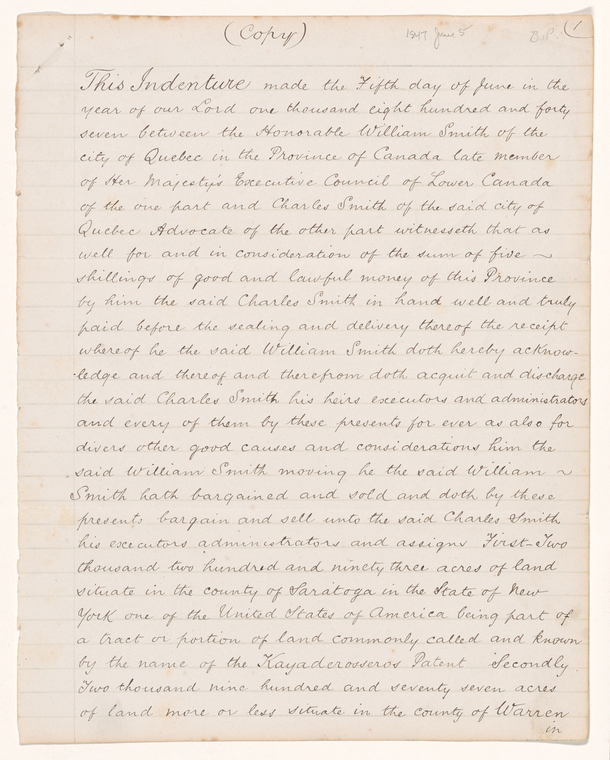 (Copy)
1847 June 5
1
This Indenture made the Fifth day of June in the
year of our Lord one thousand eight hundred and forty
seven between the Honorable William Smith of the
city of Quebec in the Province of Canada late member
of Her Majesty's Executive Council of Lower Canada
of the one part and Charles Smith of the said city of
Quebec Advocate of the other part witnesseth that as
well for and in consideration of the sum of five ~
shillings of good and lawful money of this Province
by him the said Charles Smith in hand well and truly
paid before the sealing and delivery thereof the receipt
whereof he the said William Smith doth hereby acknow-
-ledge and thereof and therefrom doth acquit and discharge
the said Charles Smith his heirs executors and administrators
and every of them by these presents for ever as also for
divers other good causes and considerations him the
said William Smith moving he the said William ~
Smith hath bargained and sold and doth by these
presents bargain and sell unto the said Charles Smith
his executors administrators and assigns First-Two
thousand two hundred and ninety three acres of land
situate in the county of Saratoga in the State of New
York one of the United States of America being part of
a tract or portion of land commonly called and known
by the name of the Kayaderosseros Patent Secondly
Two thousand nine hundred and seventy seven acres
of land more or less situate in the county of Warren
in